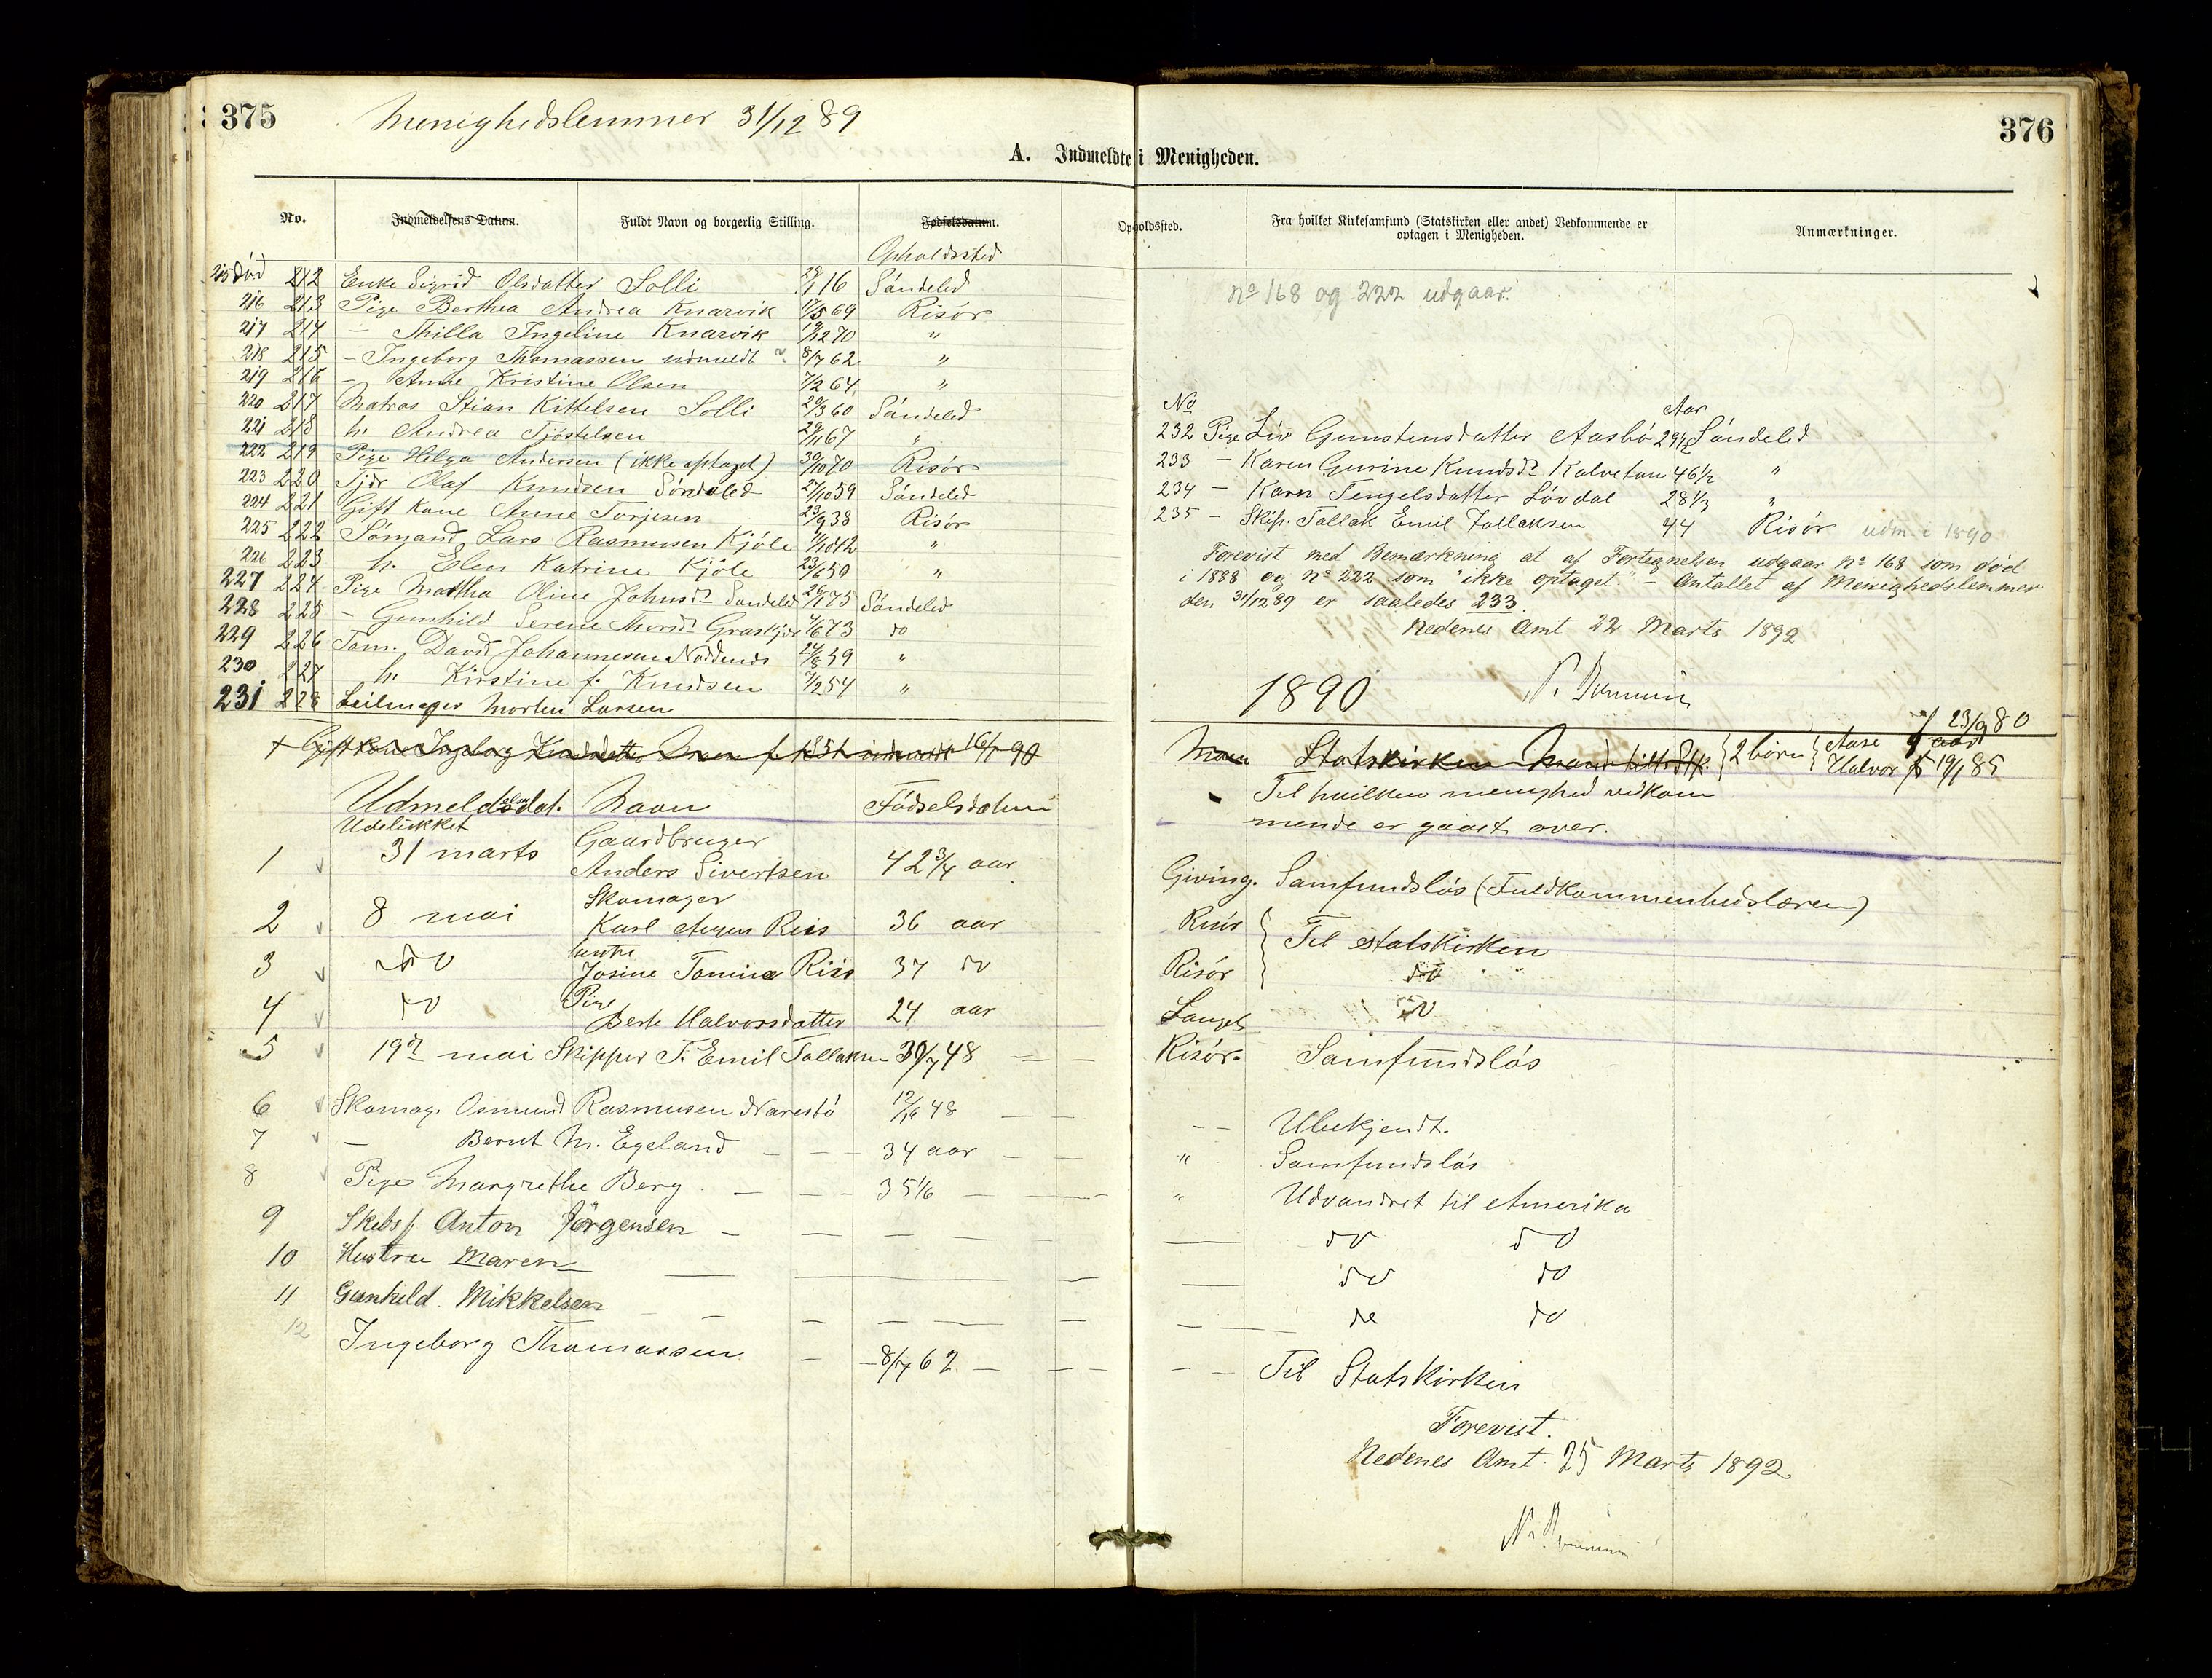 375 Menighedslemmer 31/12 89
376
A. Indmeldte i Menigheden.
No. Indmeldelsens Datum. Fuldt Navn og borgerlig Stilling. Fødselsdatum. Opholdssted. Fra hvilket Kirkesamfund (Statskirken eller andet) Vedkommende er
optagen i Menigheden. Anmærkninger.
Opholdssted
215 død 212 Enke Sigrid Olsdatter Solli 16 Söndeled
216 213 Pige Berthea Andrea Knarvik 17/5 69 Risör
217 214 – Thilla Ingeline Knarvik 19/12 70 "
218 215 – Ingeborg Thomassen udmeldt 8/7 62 "
219 216 – Anne Kristine Olsen 7/2 64 "
220 217 Matros Stian Kittelsen Solli 20/3 60 Söndeled
221 218 h. Andrea Tjöstelsen 29/11 67 "
222 219 Pige Helga Andersen (ikke optaget) 30/10 70 Risör
223 220 Tjdr Olaf Knudsen Söndeled 27/10 59 Söndeled
224 221 Gift Kone Anne Torjesen 23/9 38 Risör
225 222 Sömand Lars Rasmusen Kjöle 42 "
226 223 h. Elen Katrine Kjöle 23/6 50 "
227 224 Pige Martha Oline Johnsd. Sandeled 26/1 75 Söndeled
228 225 – Gunhild Serene 73 do
229 226 Töm. David Johannesen 24/8 59 "
230 227 h. Kirstine f. Knudsen 7/2 54 "
231 228 Seilmager Morten Larsen
no 168 og 222 udgaar.
No Aar
232 Pige Liv Gunstensdatter Aasbö 29 1/2 Söndeled
233 – Karen Gurine Knudsd. Kalvetan 46 1/2 "
234 – Karn Tengelsdatter Lövdal 28 1/3 "
235 – Skip. Tallak Emil Tallaksen 44 Risör udm. i 1890
Forevist med Bemærkning at af Fortegnelsen udgaar no 168 som død
i 1888 og no 222 som "ikke optaget" – Antallet af Menighedslemmer
den 31/12 89 er saaledes 233.
Nedenes Amt 22 Marts 1892
1890
Gift Kone Ingeborg 16/1 90 Statskirken 2 börn Aase f 23/9 80
Halvor f 19/1 85
Udmeldelsesdat. Navn Födselsdatum Til hvilken menighed vedkom
mende er gaaet over.
Udelukket Gaardbruger
1 31 marts Anders Sivertsen 42 3/4 aar Giving. Samfundslös (Fuldkommenhedslæren)
Skomager
2 8 mai Karl Riis 36 aar Risör Til statskirken
hustru
3 do Josine Tomine Riis 37 do Risör do
Pige
4 do Berte Halvorsdatter 24 aar Do
5 19de mai Skipper T. Emil Tallaksen 30/7 48 – – Risör. Samfundslös
6 Skomag. Osmund Rasmusen Narestö 48 – – – – Ubekjendt.
7 – Bernt M. Egeland – – – 34 aar – – " Samfundslös
8 Pige Margrethe Berg – – – 35 1/6 – – – " Udvandret til Amerika
9 Skibsf. Anton Jörgensen – – – – – – do do
10 Hustru Maren – – – – – do do
11 Gunhild Mikkelsen – – – – – – – do do
12 Ingeborg Thomassen – – 8/7 62 – – – – – Til Statskirken
Forevist.
Nedenes Amt 25 Marts 1892